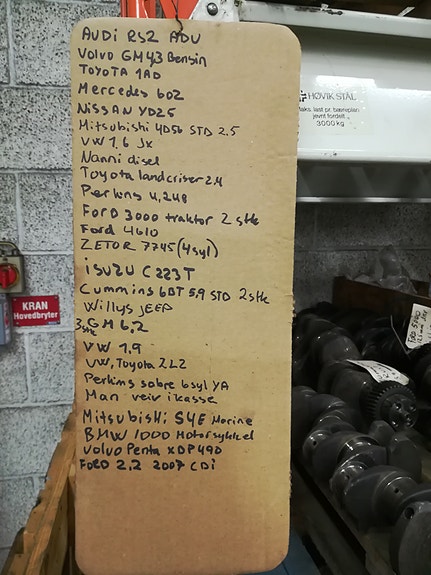 AUDI RS2 ADU
Volvo GM43 Bensin
TOYOTA 1AD
Mercedes 602
NISSAN YD25
Mitsubishi 4D56 STD 2.5
VW 1,6 Jx
Nanni disel
Toyota landcriser 2.4
Perkins 4,248
FORD 3000 traktor 2 stk
Ford 4610
ZETOR 7745 (4syl)
iSUZU C223T
Cummins 6BT 5,9 STD 2stk
Willys JEEP
3stk GM 6,2
VW 1,9
VW, Toyota 2L2
Perkins sabre 6syl YA
Man veiv i kasse
Mitsubishi S4E Marine
BMW 1000 Motorsykkel
Volvo Penta XDP490
FORD 2,2 2007 CDi
HØVIK STÅL
Maks. last pr. bæreplan
jevnt fordelt
3000 kg
KRAN
Hovedbryter